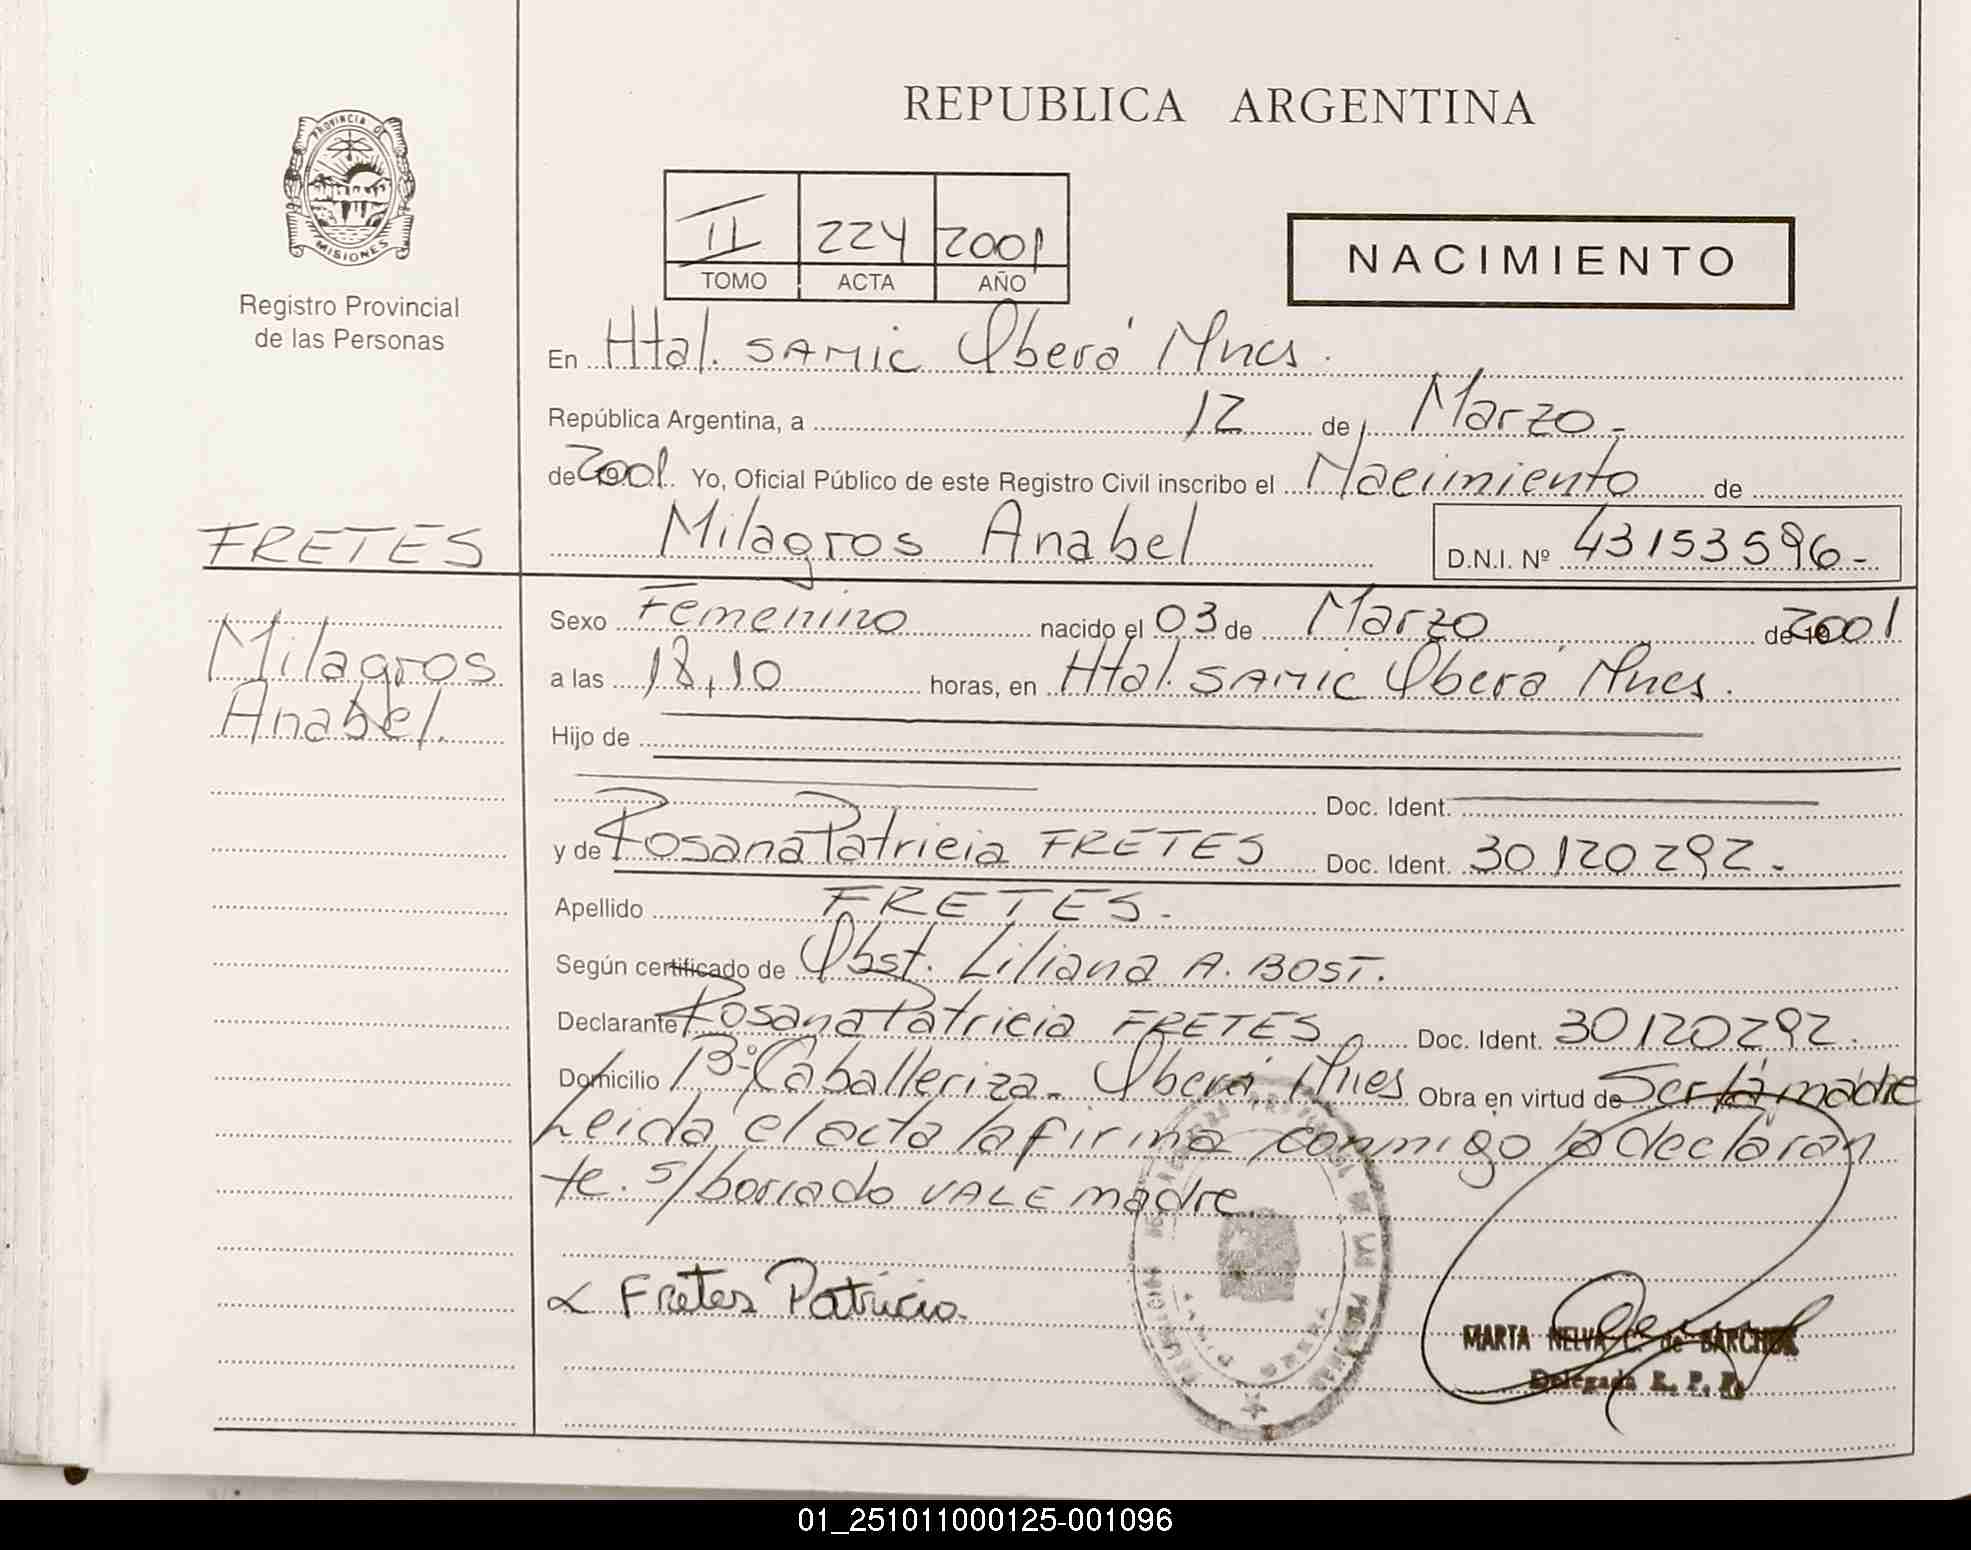 REPUBLICA ARGENTINA
PROVINCIA DE
MISIONES
Registro Provincial
de las Personas
II 224 2001
TOMO ACTA AÑO
NACIMIENTO
En Htal. SAMIC Oberá Mnes.
República Argentina, a 12 de Marzo-
de 2001. Yo, Oficial Público de este Registro Civil inscribo el Nacimiento de
FRETES
Milagros Anabel
D.N.I. Nº 43153596-
Milagros
Anabel.
Sexo Femenino nacido el 03 de Marzo de 2001
a las 18,10 horas, en Htal. SAMIC Oberá Mnes.
Hijo de
Doc. Ident.
y de Rosana Patricia FRETES Doc. Ident. 30120292-
Apellido FRETES.
Según certificado de Obst. Liliana A. BOST.
Declarante Rosana Patricia FRETES Doc. Ident. 30120292.
Domicilio Bº Caballeriza- Oberá Mnes Obra en virtud de Ser la madre
Leida el acta la firma conmigo la declaran
te. s/borrado VALE madre
Fretes Patricia.
MARTA NELVA C. de BARCHUK
Delegada R. P. P.
01_251011000125-001096